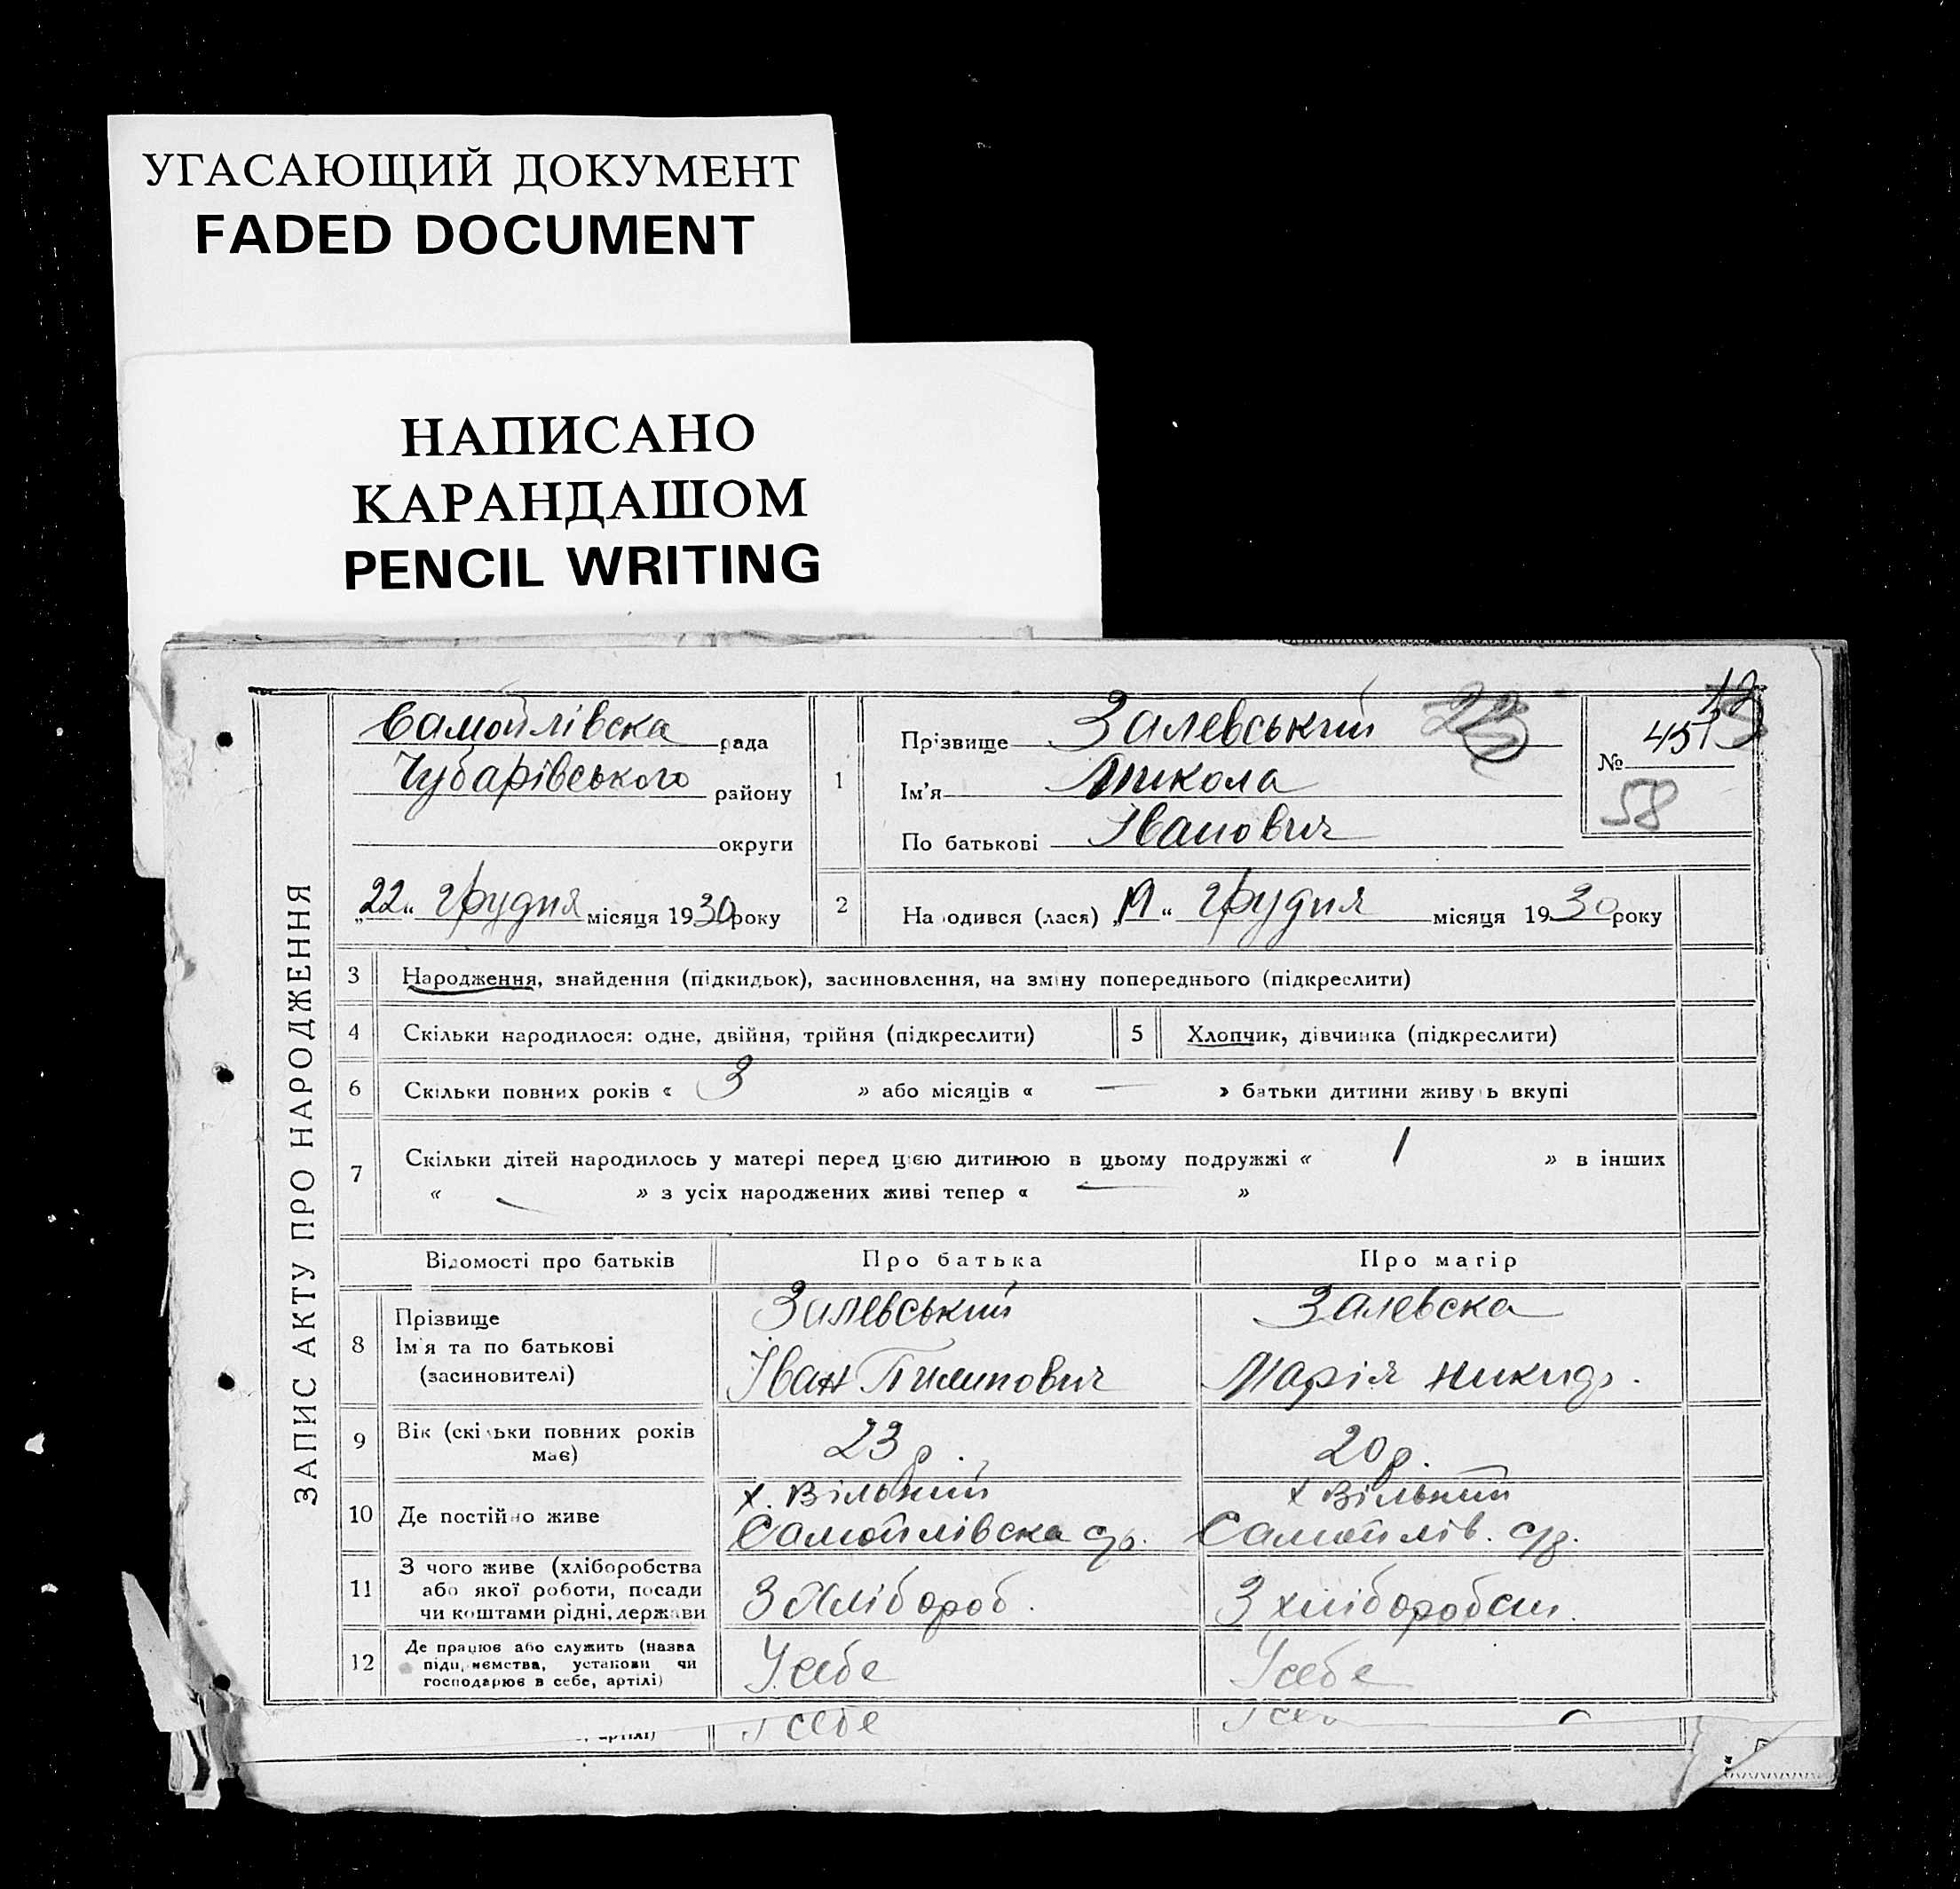 УГАСАЮЩИЙ ДОКУМЕНТ
FADED DOCUMENT
НАПИСАНО
КАРАНДАШОМ
PENCIL WRITING
ЗАПИС АКТУ ПРО НАРОДЖЕННЯ
Самойлівска рада
Чубарівського району
округи
„22“ грудня місяця 1930 року
1
Прізвище Залевський
Ім'я Микола
По батькові Іванович
23
№ 457
58
2
На одився (лася) „ “ грудня місяця 1930 року
3 Народження, знайдення (підкидьок), засиновлення, на зміну попереднього (підкреслити)
4 Скільки народилося: одне, двійня, трійня (підкреслити)
5 Хлопчик, дівчинка (підкреслити)
6 Скільки повних років « 3 » або місяців « — » батьки дитини живуть вкупі
7 Скільки дітей народилось у матері перед цією дитиною в цьому подружжі « 1 » в інших
« — » з усіх народжених живі тепер « — »
Відомості про батьків Про батька Про матір
8 Прізвище
Ім'я та по батькові
(засиновителі)
Залевський
Іван Пилипович
Залевска
Марія Никид.
9 Вік (скільки повних років
має)
23 р.
20 р.
10 Де постійно живе
х. Вільний
Самойлівска с/р.
х Вільний
Самойлів. с/р.
11 З чого живе (хліборобства
або якої роботи, посади
чи коштами рідні, держави
З Хлібороб.
З хліборобст.
12 Де працює або служить (назва
підприємства, установи чи
господарює в себе, артілі)
У себе
У себе
артілі)
У себе